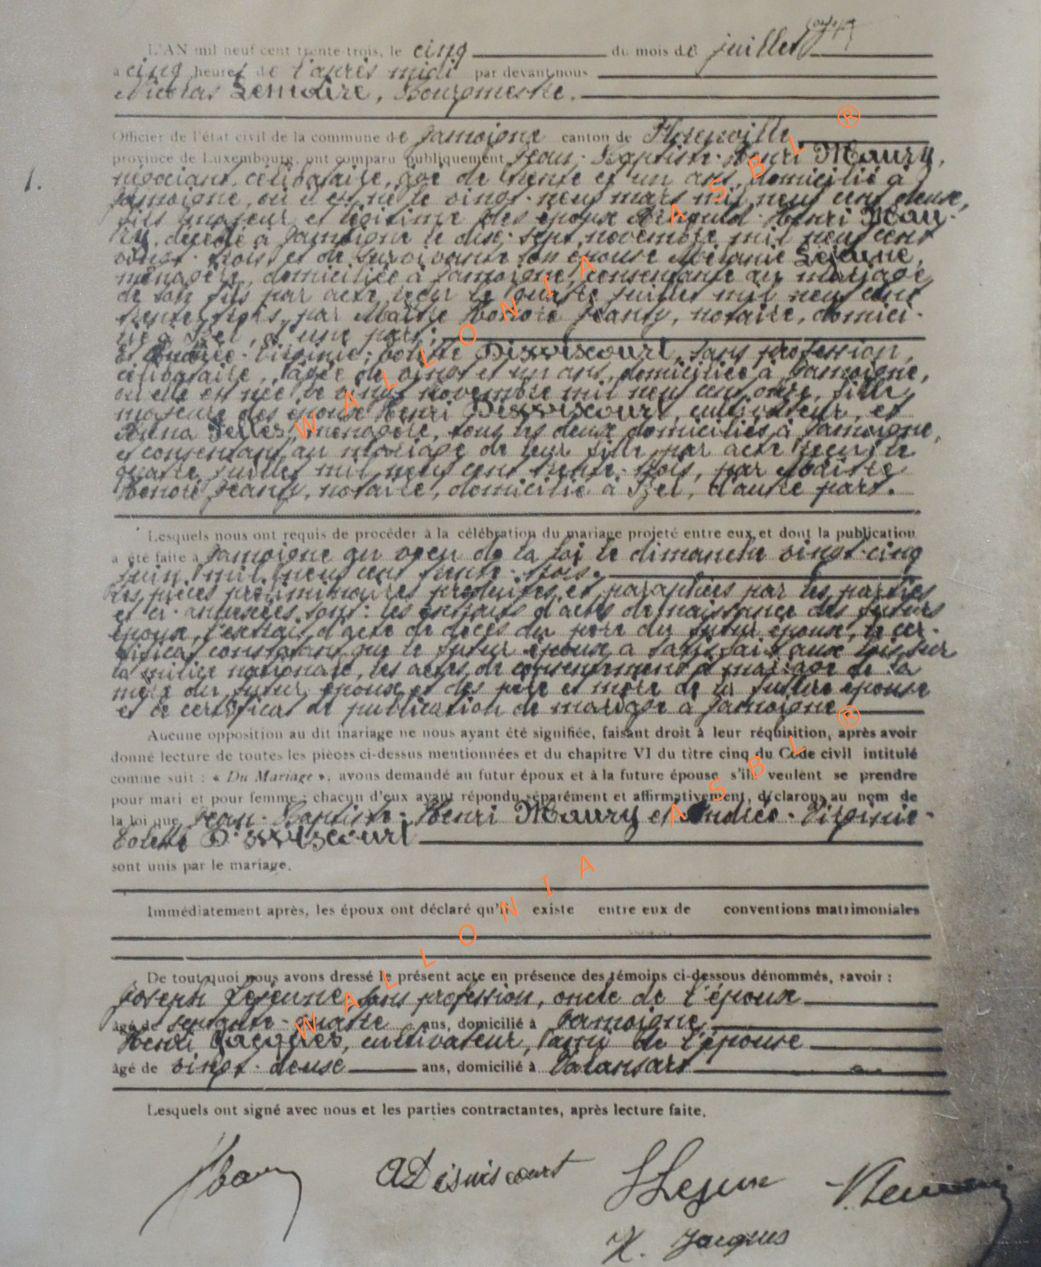 L'AN mil neuf cent trente-trois, le cinq du mois de juillet
à cinq heures de l'après midi par devant nous
Nicolas Lemaire, Bourgmestre.
Officier de l'état civil de la commune de Jamoigne canton de Florenville
province de Luxembourg, ont comparu publiquement Jean-Baptiste-Henri Maury,
1.
négociant, célibataire, âgé de trente et un ans, domicilié à
Jamoigne, où il est né le vingt-neuf mars mil neuf cent deux,
fils majeur et légitime des époux Henri Mau-
ry, décédé à Jamoigne le dix-sept novembre mil neuf cent
vingt-trois et de survivante son épouse Mélanie Lejeune,
ménagère, domiciliée à Jamoigne, consentante au mariage
de son fils par acte reçu le quatre juillet mil neuf cent
trente-trois, par Maître Honoré Jeanty, notaire, domici-
lié à Izel, d'une part;
et Andrée-Virginie-Colette Dissviscourt, sans profession,
célibataire, âgée de vingt et un ans, domiciliée à Jamoigne,
où elle est née le vingt novembre mil neuf cent onze, fille
majeure des époux Henri Dissviscourt, cultivateur, et
Jelles, ménagère, tous les deux domiciliés à Jamoigne,
et consentant au mariage de leur fille par acte reçu le
quatre juillet mil neuf cent trente-trois, par Maître
Honoré Jeanty, notaire, domicilié à Izel, d'autre part.
Lesquels nous ont requis de procéder à la célébration du mariage projeté entre eux et dont la publication
a été faite à Jamoigne au vœu de la loi le dimanche vingt-cinq
juin mil neuf cent trente-trois.
Les pièces préliminaires produites et paraphées par les parties
et ci-annexées sont: les extraits d'actes de naissance des futurs
époux, l'extrait d'acte de décès du père du futur époux, le cer-
tificat constatant que le futur époux a satisfait aux lois sur
la milice nationale, les actes de consentement à mariage de la
mère du futur époux et des père et mère de la future épouse
et le certificat de publication de mariage à Jamoigne
Aucune opposition au dit mariage ne nous ayant été signifiée, faisant droit à leur réquisition, après avoir
donné lecture de toutes les pièces ci-dessus mentionnées et du chapitre VI du titre cinq du Code civil intitulé
comme suit : « Du Mariage », avons demandé au futur époux et à la future épouse s'ils veulent se prendre
pour mari et pour femme ; chacun d'eux ayant répondu séparément et affirmativement, déclarons au nom de
la loi que Jean-Baptiste-Henri Maury et Andrée-Virginie-
Colette Dissviscourt
sont unis par le mariage.
Immédiatement après, les époux ont déclaré qu'il existe entre eux de conventions matrimoniales
De tout quoi nous avons dressé le présent acte en présence des témoins ci-dessous dénommés, savoir :
Joseph Lejeune, sans profession, oncle de l'époux
âgé de septante-quatre ans, domicilié à Jamoigne,
Henri Jacques, cultivateur, ami de l'épouse
âgé de vingt-deux ans, domicilié à Valansart
Lesquels ont signé avec nous et les parties contractantes, après lecture faite.
A Disviscourt
J Lejeune
N. Lemaire
H. Jacques
WALLONIA ASBL ®
WALLONIA ASBL ®